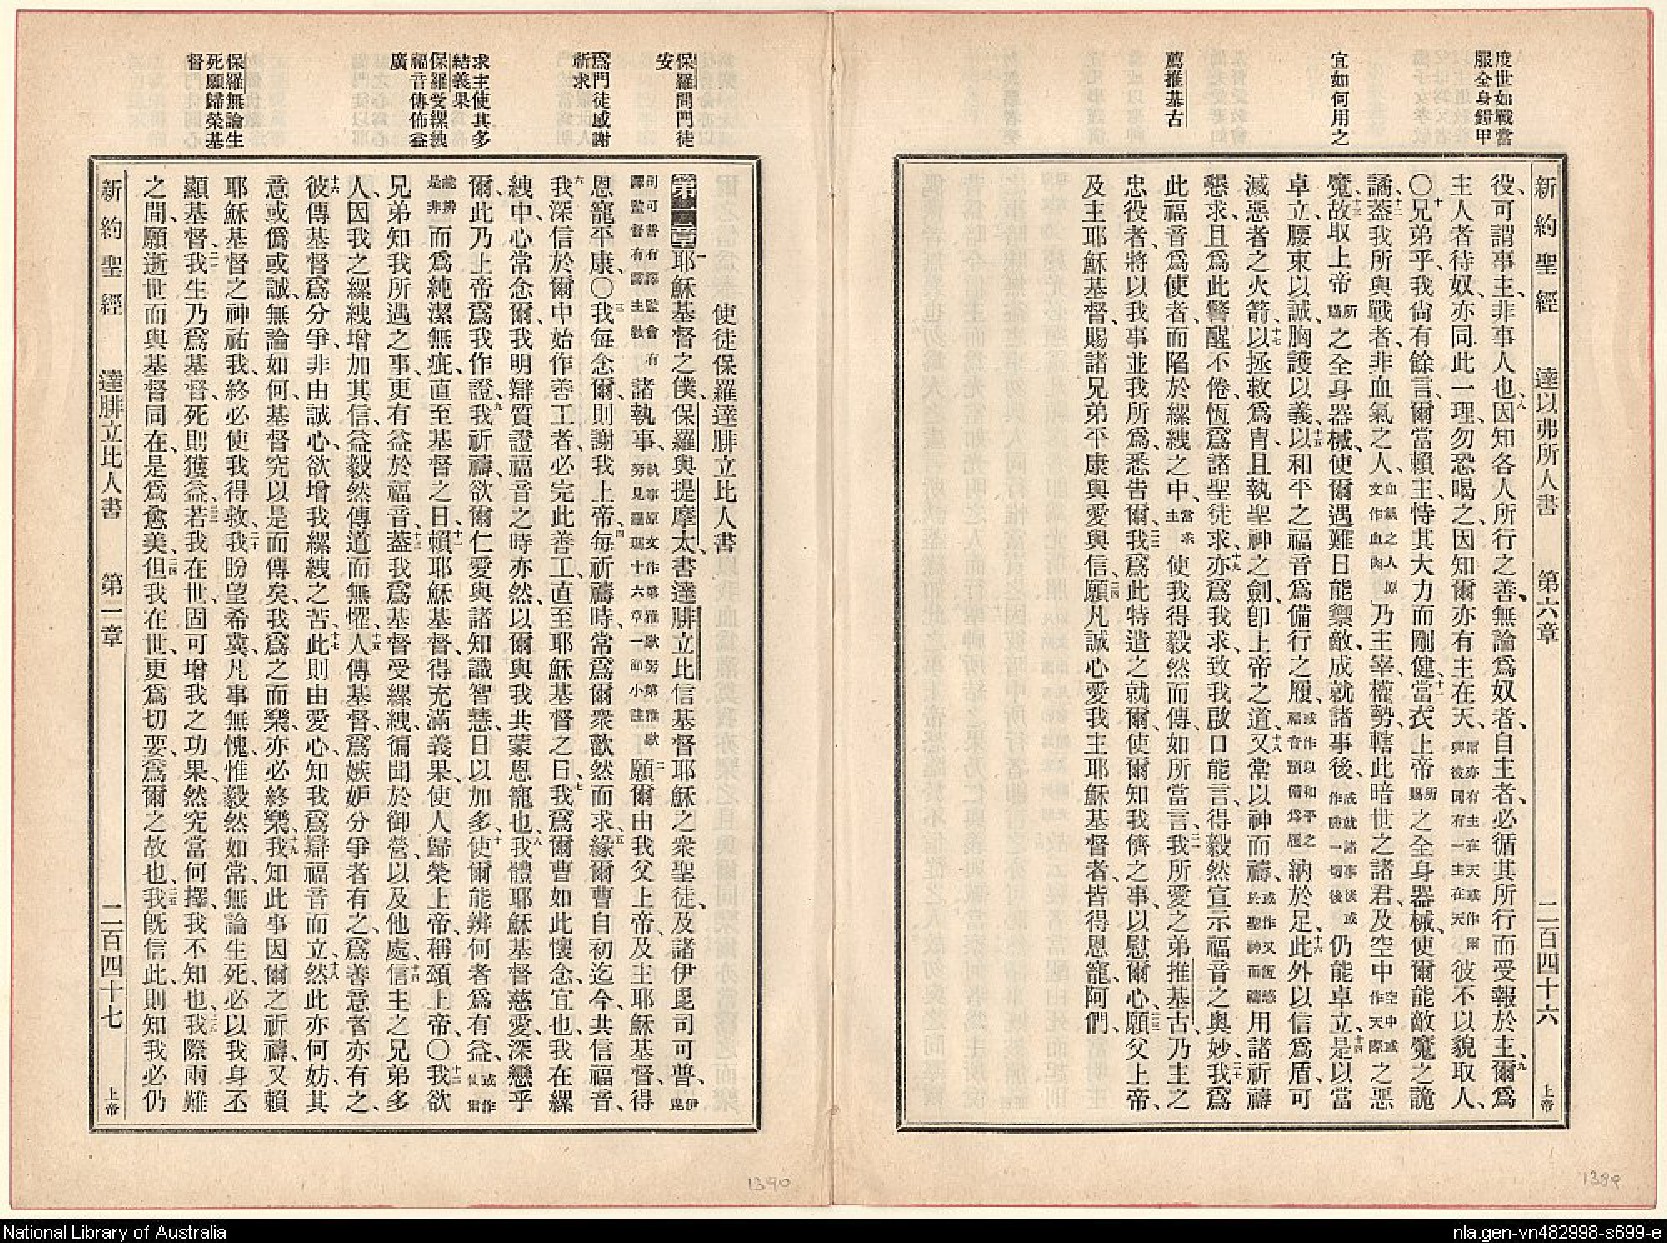 度世如戰當
服全身鎧甲
宜如何用之
薦推基古
新約聖經 達以弗所人書 第六章 二百四十六 上帝
役、可謂事主、非事人也、八因知各人所行之善、無論爲奴者、自主者、必循其所行而受報於主、九爾爲
主人者、待奴亦同此一理、勿恐喝之、因知爾亦有主在天、爾亦有主在天或作爾與彼同有一主在天彼不以貌取人、
〇十兄弟乎、我尙有餘言、爾當賴主、恃其大力而剛健、十一當衣上帝所賜之全身器械、使爾能敵魔之詭
譎、十二蓋我所與戰者、非血氣之人、血氣之人原文作血肉乃主宰權勢、轄此暗世之諸君、及空中空中或作天際之惡
魔、十三故取上帝所賜之全身器械、使爾遇難日能禦敵、成就諸事後、成就諸事後或作勝一切後仍能卓立、十四是以當
卓立、腰束以誠、胸護以義、十五以和平之福音爲備行之履、或作以和平之福音預備爲履納於足、十六此外以信爲盾、可
滅惡者之火箭、十七以拯救爲冑、且執聖神之劍、卽上帝之道、十八又常以神而禱、或作又恆感於聖神而禱用諸祈禱
懇求、且爲此警醒不倦、恆爲諸聖徒求、十九亦爲我求、致我啟口能言、得毅然宣示福音之奧妙、二十我爲
此福音爲使者、而陷於縲絏之中、當求主使我得毅然而傳、如所當言、二一我所愛之弟推基古、乃主之
忠役者、將以我事並我所爲、悉告爾、二二我爲此特遣之就爾、使爾知我儕之事、以慰爾心、二三願父上帝、
及主耶穌基督、賜諸兄弟平康、與愛與信、二四願凡誠心愛我主耶穌基督者、皆得恩寵、阿們、
保羅問門徒
安
爲門徒感謝
祈求
求主使其多
結義果
保羅受縲絏
福音傳佈益
廣
保羅無論生
死願歸榮基
督
使徒保羅達腓立比人書
第一章一耶穌基督之僕、保羅與提摩太、書達腓立比信基督耶穌之衆聖徒、及諸伊毘司可普、伊毘
司可普有譯監會有譯監督有譯主教諸執事、執事原文作第雅歌努第雅歌努見羅瑪十六章一節小註二願爾由我父上帝、及主耶穌基督、得
恩寵平康、〇三我每念爾、則謝我上帝、四每祈禱時、常爲爾衆歡然而求、五緣爾曹自初迄今、共信福音、
六我深信於爾中始作善工者、必完此善工、直至耶穌基督之日、七我爲爾曹如此懷念、宜也、我在縲
絏中、心常念爾、我明辯質證福音之時亦然、以爾與我共蒙恩寵也、八我體耶穌基督慈愛、深戀乎
爾、此乃上帝爲我作證、九我祈禱、欲爾仁愛與諸知識智慧、日以加多、十使爾能辨何者爲有益、或作使爾
能辨是非而爲純潔無疵、直至基督之日、十一賴耶穌基督、得充滿義果、使人歸榮上帝、稱頌上帝、〇十二我欲
兄弟知我所遇之事、更有益於福音、十三蓋我爲基督受縲絏、徧聞於御營、以及他處、十四信主之兄弟多
人、因我之縲絏、增加其信、益毅然傳道而無懼、十五人傳基督、爲嫉妒分爭者有之、爲善意者亦有之、
十六彼傳基督爲分爭、非由誠心、欲增我縲絏之苦、十七此則由愛心、知我爲辯福音而立、十八然此亦何妨、其
意或僞或誠、無論如何、基督究以是而傳矣、我爲之而樂、亦必終樂、十九我知此事、因爾之祈禱、又賴
耶穌基督之神祐我、終必使我得救、二十我盼望希冀、凡事無愧、惟毅然如常、無論生死、必以我身丕
顯基督、二一我生乃爲基督、死則獲益、二二若我在世、固可增我之功果、然究當何擇、我不知也、二三我際兩難
之間、願逝世而與基督同在、是爲愈美、二四但我在世、更爲切要、爲爾之故也、二五我旣信此、則知我必仍
新約聖經 達腓立比人書 第一章 二百四十七 上帝
1390
1389
National Library of Australia
nla.gen-vn482998-s699-e